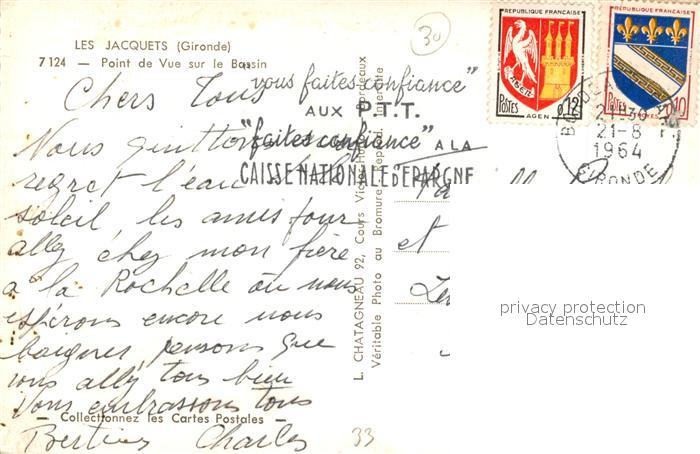 LES JACQUETS (Gironde)
7124 — Point de Vue sur le Bassin
30
"vous faites confiance"
AUX P.T.T.
"faites confiance" A LA
CAISSE NATIONALE D'EPARGNE
REPUBLIQUE FRANÇAISE
AGEN
POSTES 0,12
AGEN
REPUBLIQUE FRANÇAISE
POSTES 0,10
21H30
21-8
1964
GIRONDE
Chers Tous
Nous quittons
regret l'eau
soleil les amis pour
allez chez mon frère
a la Rochelle où nous
espérons encore nous
baigner pensons que
vous allez tous bien
Vous embrassons tous
Charles
et
L. CHATAGNEAU 92, Cours Victor-Hugo Bordeaux
Véritable Photo au Bromure - Reprod. Interdite
Collectionnez les Cartes Postales
33
privacy protection
Datenschutz